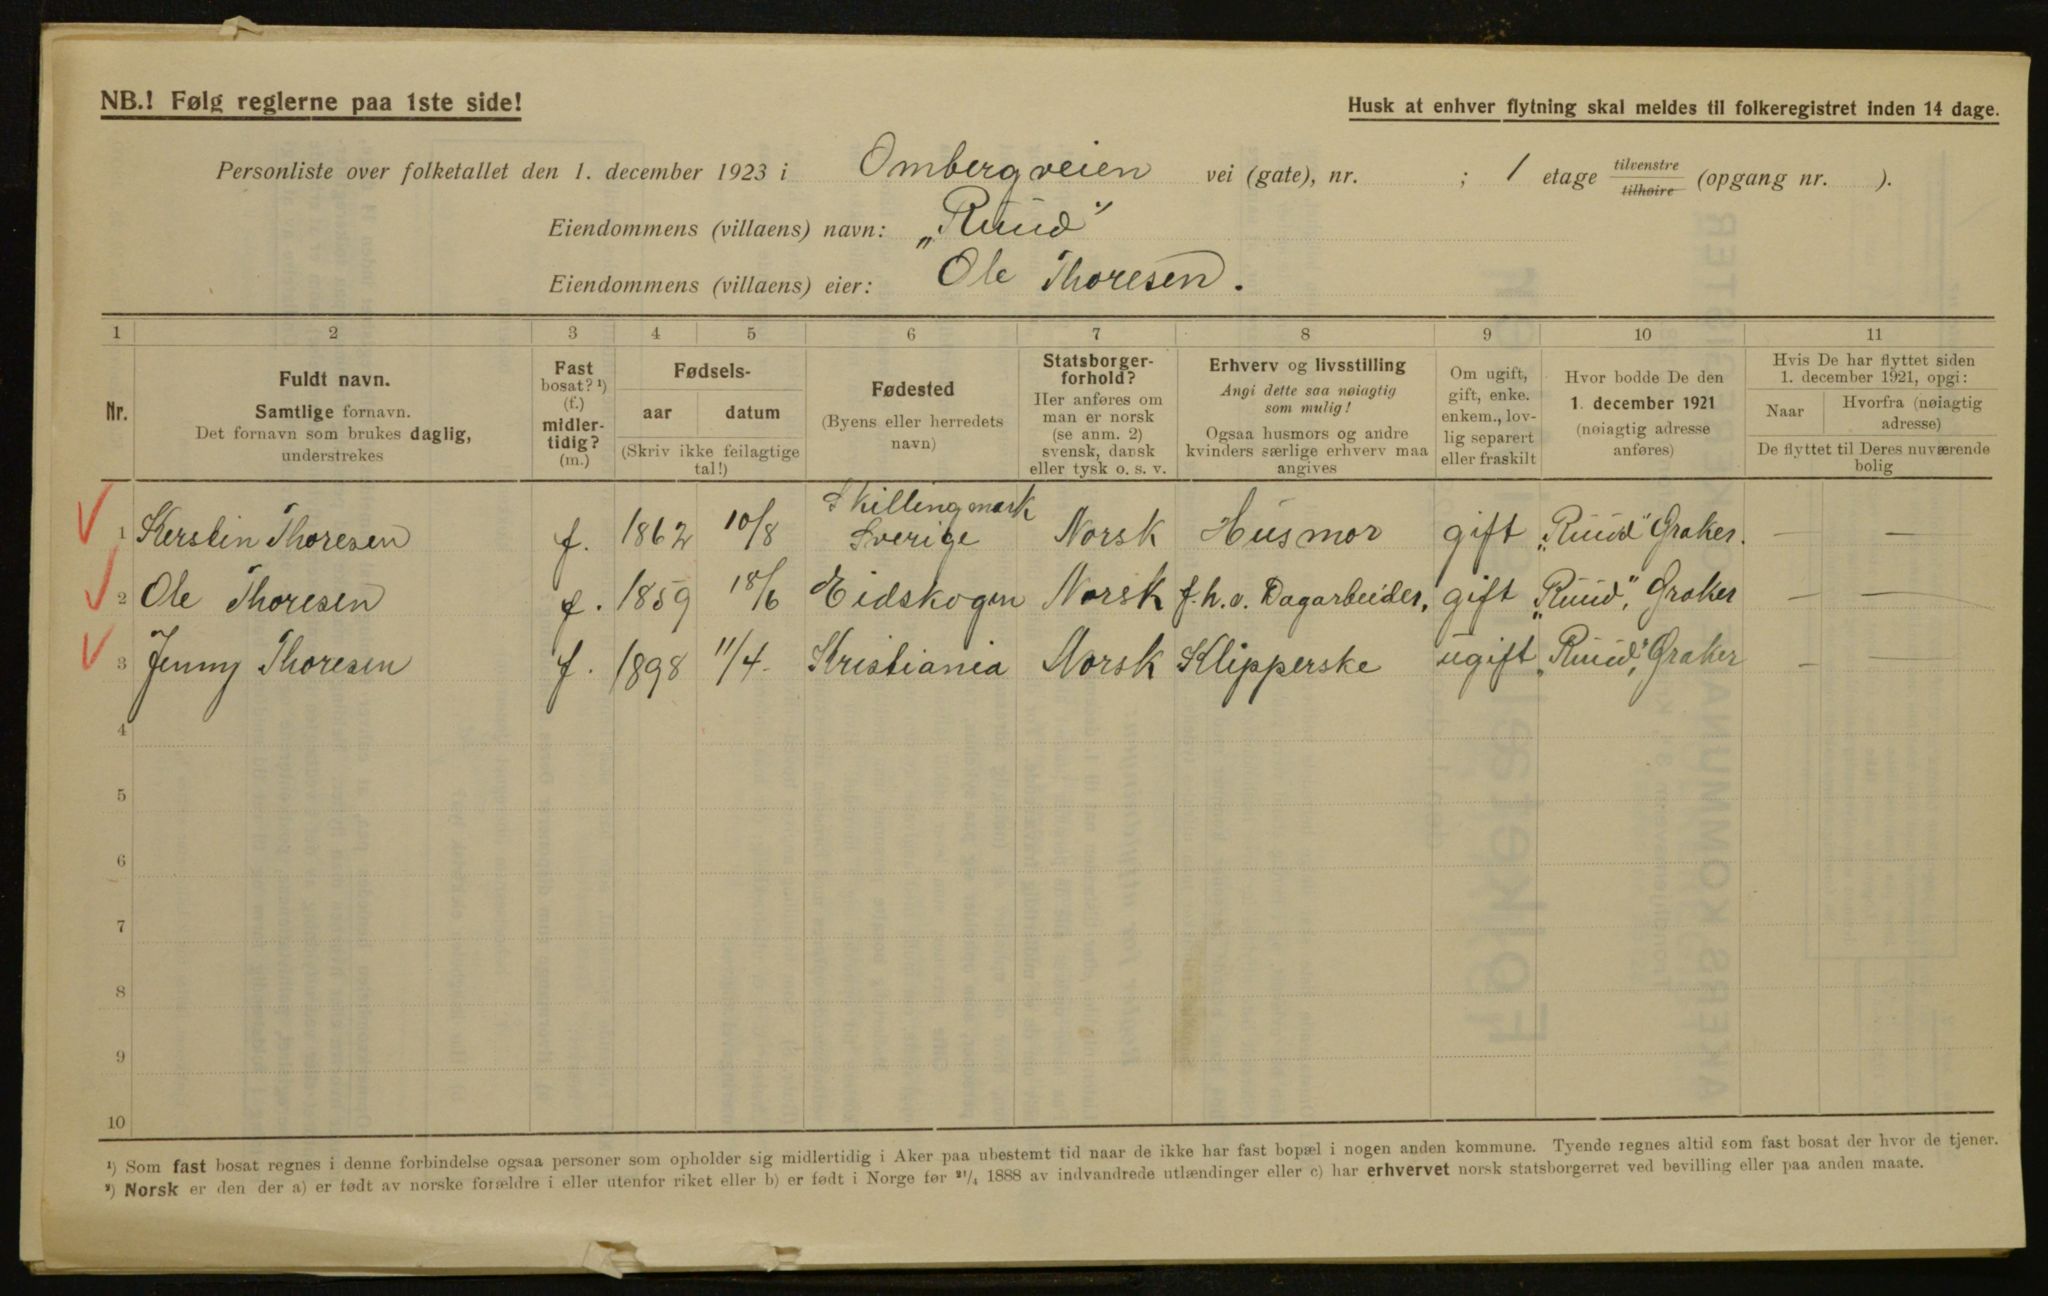 NB.! Følg reglerne paa 1ste side!
Husk at enhver flytning skal meldes til folkeregistret inden 14 dage.
Personliste over folketallet den 1. december 1923 i Ombergveien vei (gate), nr. ; 1 etage tilvenstre tilhøire (opgang nr. ).
Eiendommens (villaens) navn: „Ruud"
Eiendommens (villaens) eier: Ole Thoresen.
1 2 3 4 5 6 7 8 9 10 11
Nr.
Fuldt navn.
Samtlige fornavn.
Det fornavn som brukes daglig,
understrekes
Fast
bosat? ¹)
(f.)
midler-
tidig?
(m.)
Fødsels-
aar datum
(Skriv ikke feilagtige
tal!)
Fødested
(Byens eller herredets
navn)
Statsborger-
forhold?
Her anføres om
man er norsk
(se anm. 2)
svensk, dansk
eller tysk o. s. v.
Erhverv og livsstilling
Angi dette saa nøiagtig
som mulig!
Ogsaa husmors og andre
kvinders særlige erhverv maa
angives
Om ugift,
gift, enke.
enkem., lov-
lig separert
eller fraskilt
Hvor bodde De den
1. december 1921
(nøiagtig adresse
anføres)
Hvis De har flyttet siden
1. december 1921, opgi:
Naar
Hvorfra (nøiagtig
adresse)
De flyttet til Deres nuværende
bolig
1 Kerstin Thoresen f. 1862 10/8 Skillingmark Sverige Norsk Husmor gift „Ruud" Graker. — —
2 Ole Thoresen f. 1859 18/6 Eidskogen Norsk f.h.v. Dagarbeider, gift „Ruud", Graker — —
3 Jenny Thoresen f. 1898 11/4 - Kristiania Norsk Klipperske ugift „Ruud", Graker — —
4
5
6
7
8
9
10
¹) Som fast bosat regnes i denne forbindelse ogsaa personer som opholder sig midlertidig i Aker paa ubestemt tid naar de ikke har fast bopæl i nogen anden kommune. Tyende regnes altid som fast bosat der hvor de tjener.
²) Norsk er den der a) er født av norske forældre i eller utenfor riket eller b) er født i Norge før ²¹/₄ 1888 av indvandrede utlændinger eller c) har erhvervet norsk statsborgerret ved bevilling eller paa anden maate.